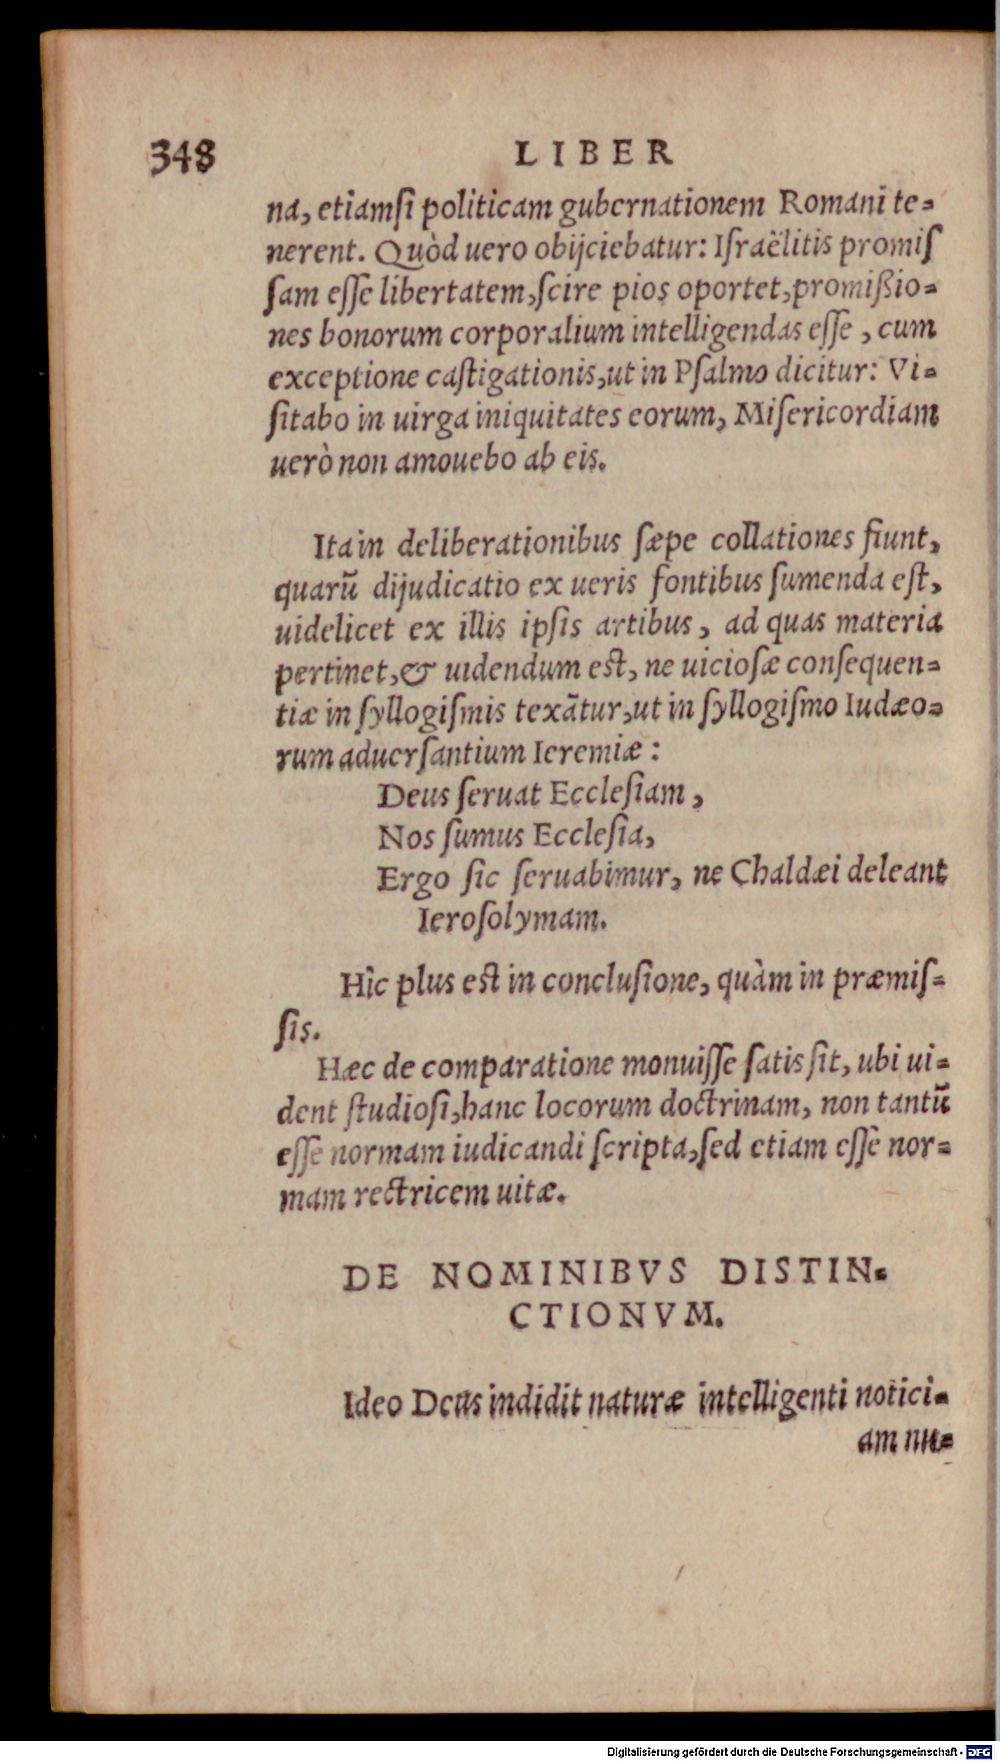 348 LIBER
na, etiamſi politicam gubernationem Romani te-
nerent. Quòd uero obijciebatur: Iſraëlitis promiſ
ſam eſſe libertatem, ſcire pios oportet, promißio-
nes bonorum corporalium intelligendas eſſe, cum
exceptione caſtigationis, ut in Pſalmo dicitur: Vi-
ſitabo in uirga iniquitates eorum, Miſericordiam
uerò non amouebo ab eis.
Ita in deliberationibus ſæpe collationes fiunt,
quarū dijudicatio ex ueris fontibus ſumenda eſt,
uidelicet ex illis ipſis artibus, ad quas materia
pertinet, & uidendum est, ne uicioſæ conſequen-
tiæ in ſyllogiſmis texātur, ut in ſyllogiſmo Iudæo-
rum aduerſantium Ieremiæ:
Deus ſeruat Eccleſiam,
Nos ſumus Eccleſia,
Ergo ſic ſeruabimur, ne Chaldæi deleant
Ieroſolymam.
Hîc plus est in concluſione, quàm in præmiſ-
ſis.
Hæc de comparatione monuiſſe ſatis ſit, ubi ui-
dent ſtudioſi, hanc locorum doctrinam, non tantū
eſſe normam iudicandi ſcripta, ſed etiam eſſe nor-
mam rectricem uitæ.
DE NOMINIBVS DISTIN-
CTIONVM.
Ideo Deus indidit naturæ intelligenti notici-
am nu-
Digitalisierung gefördert durch die Deutsche Forschungsgemeinschaft - DFG